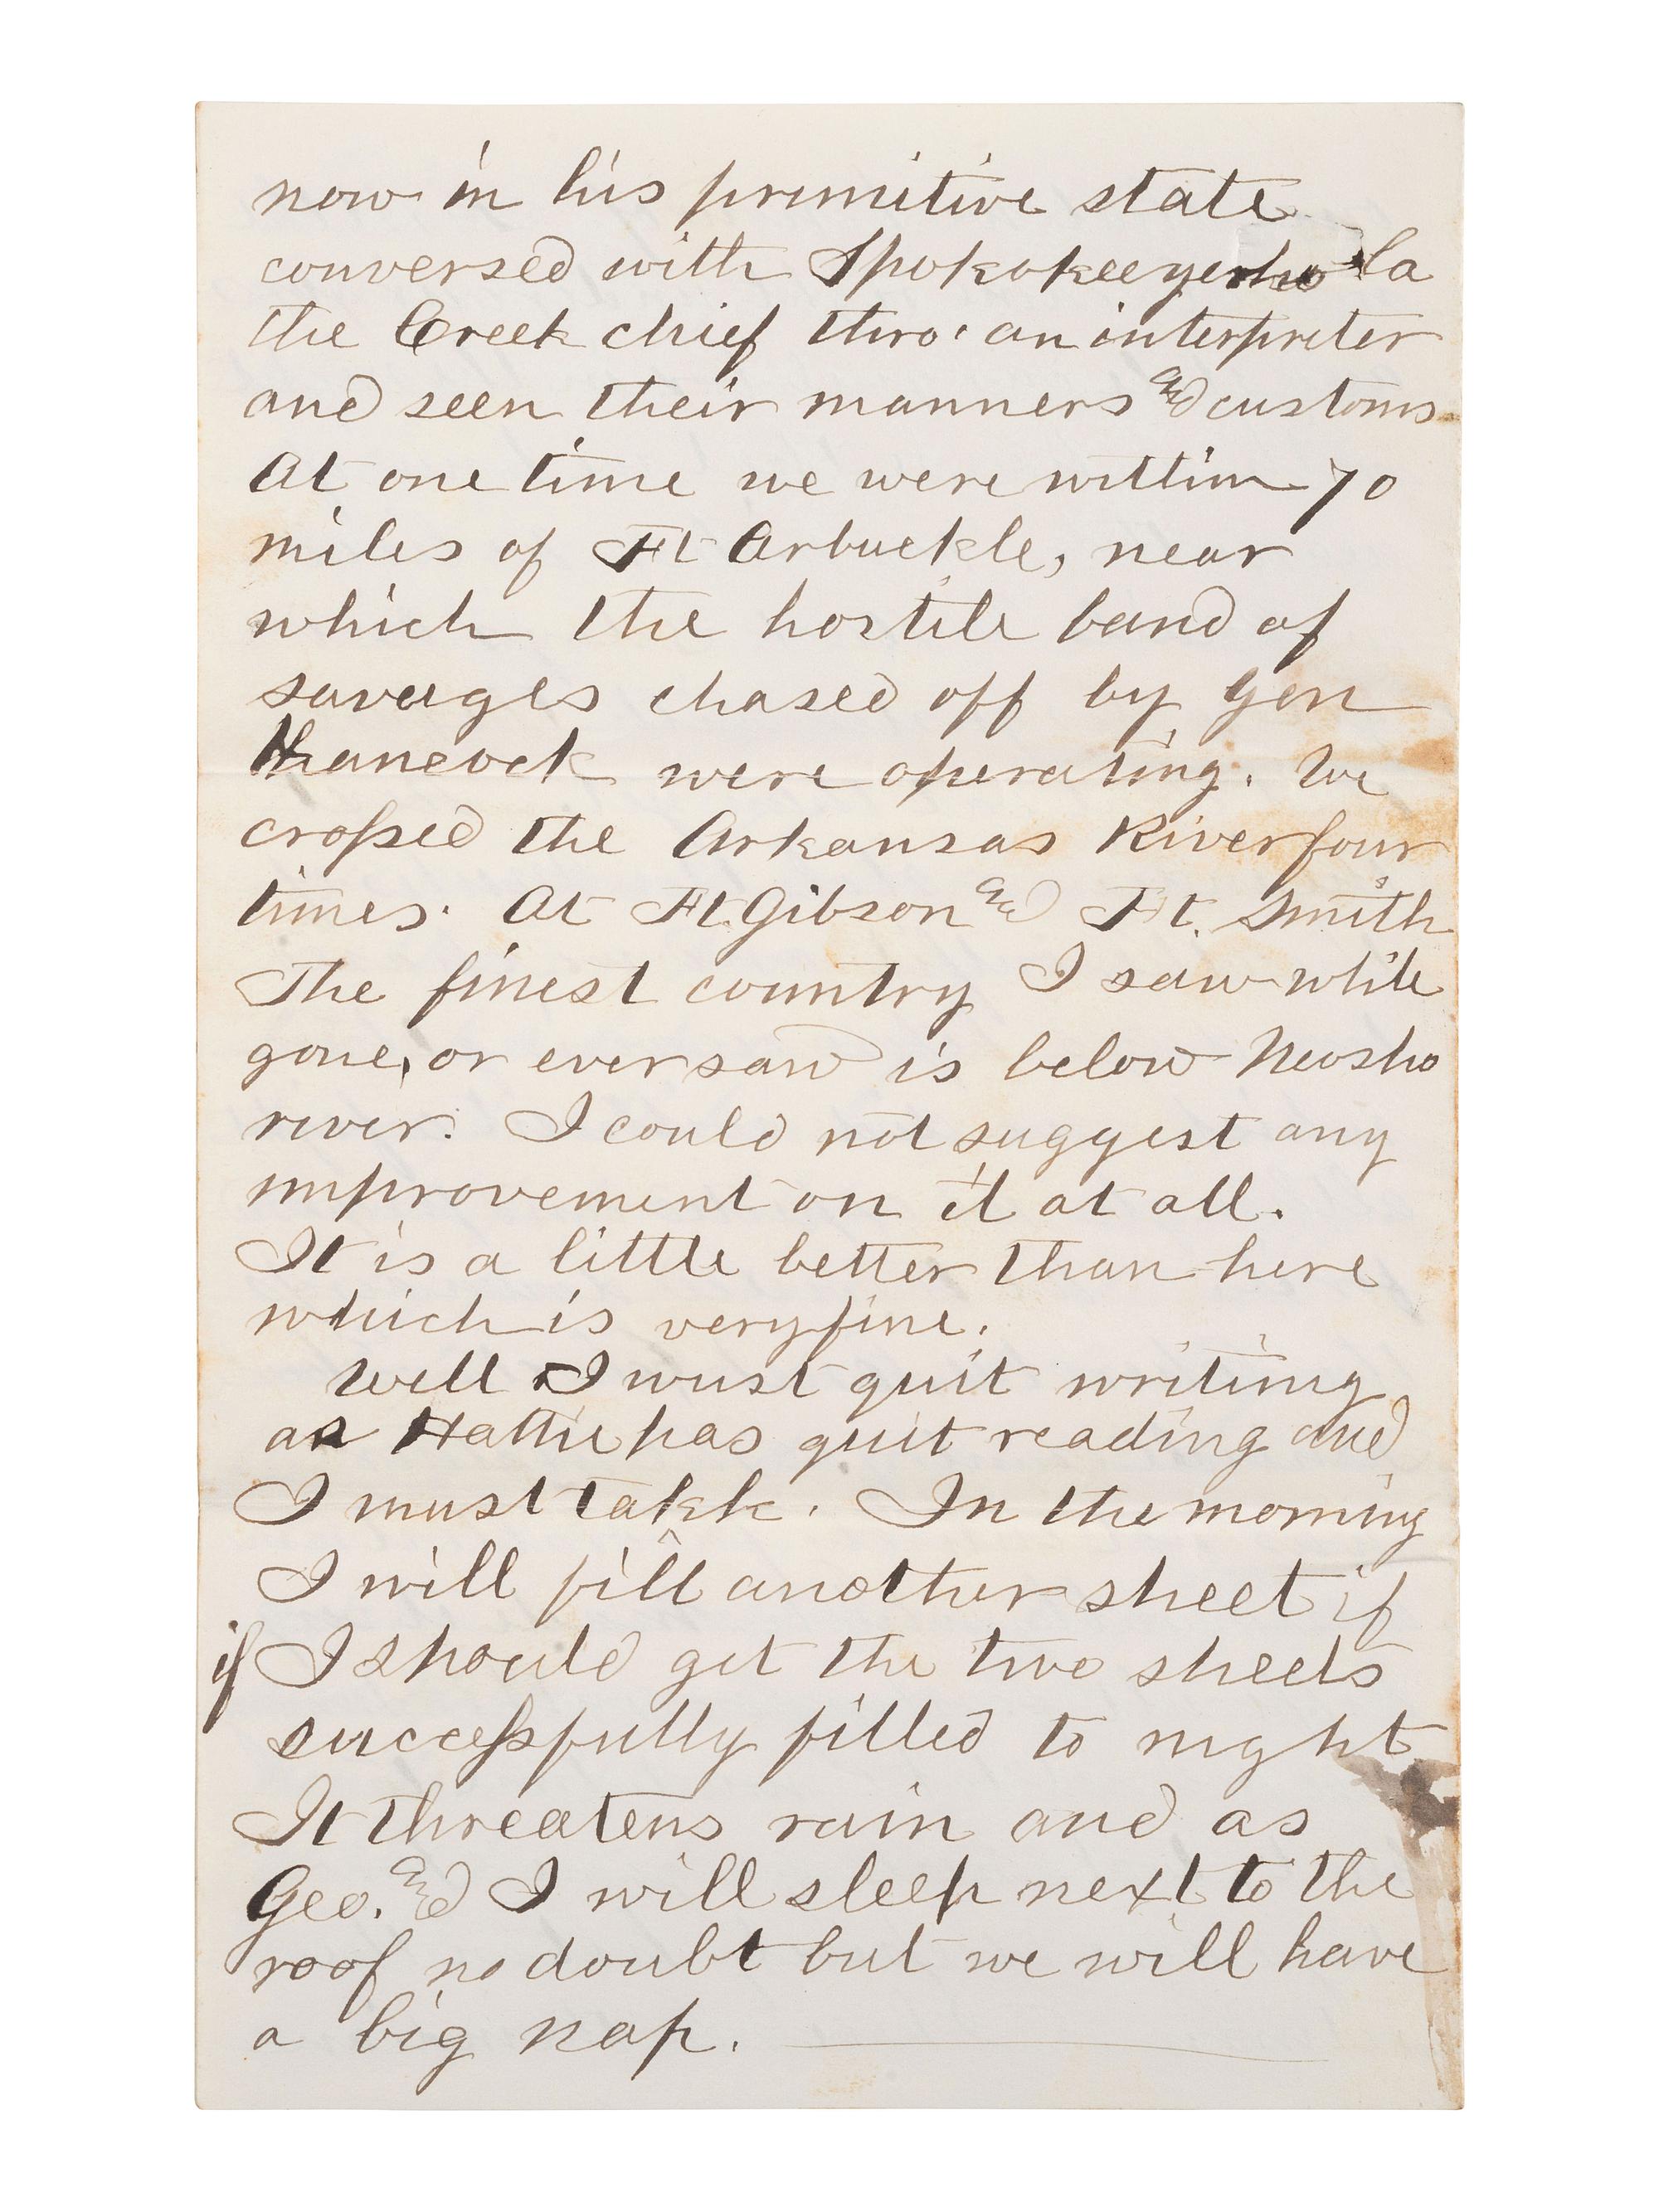 now in his primitive state
conversed with Spokokeeyeeho la
the Creek chief thro' an interpreter
and seen their manners and customs
At one time we were within 70
miles of Ft Arbuckle, near
which the hostile band of
savages chased off by Gen
Hancock were operating. We
crossed the Arkansas River four
times. At Ft. Gibson and Ft. Smith
The finest country I saw while
gone, or ever saw is below Neosho
river. I could not suggest any
improvement on it at all.
It is a little better than here
which is very fine.
Well I must quit writing
as Hattie has quit reading and
I must talk. In the morning
I will fill another sheet if
if I should get the two sheets
successfully filled to night
It threatens rain and as
Geo. and I will sleep next to the
roof no doubt but we will have
a big nap.